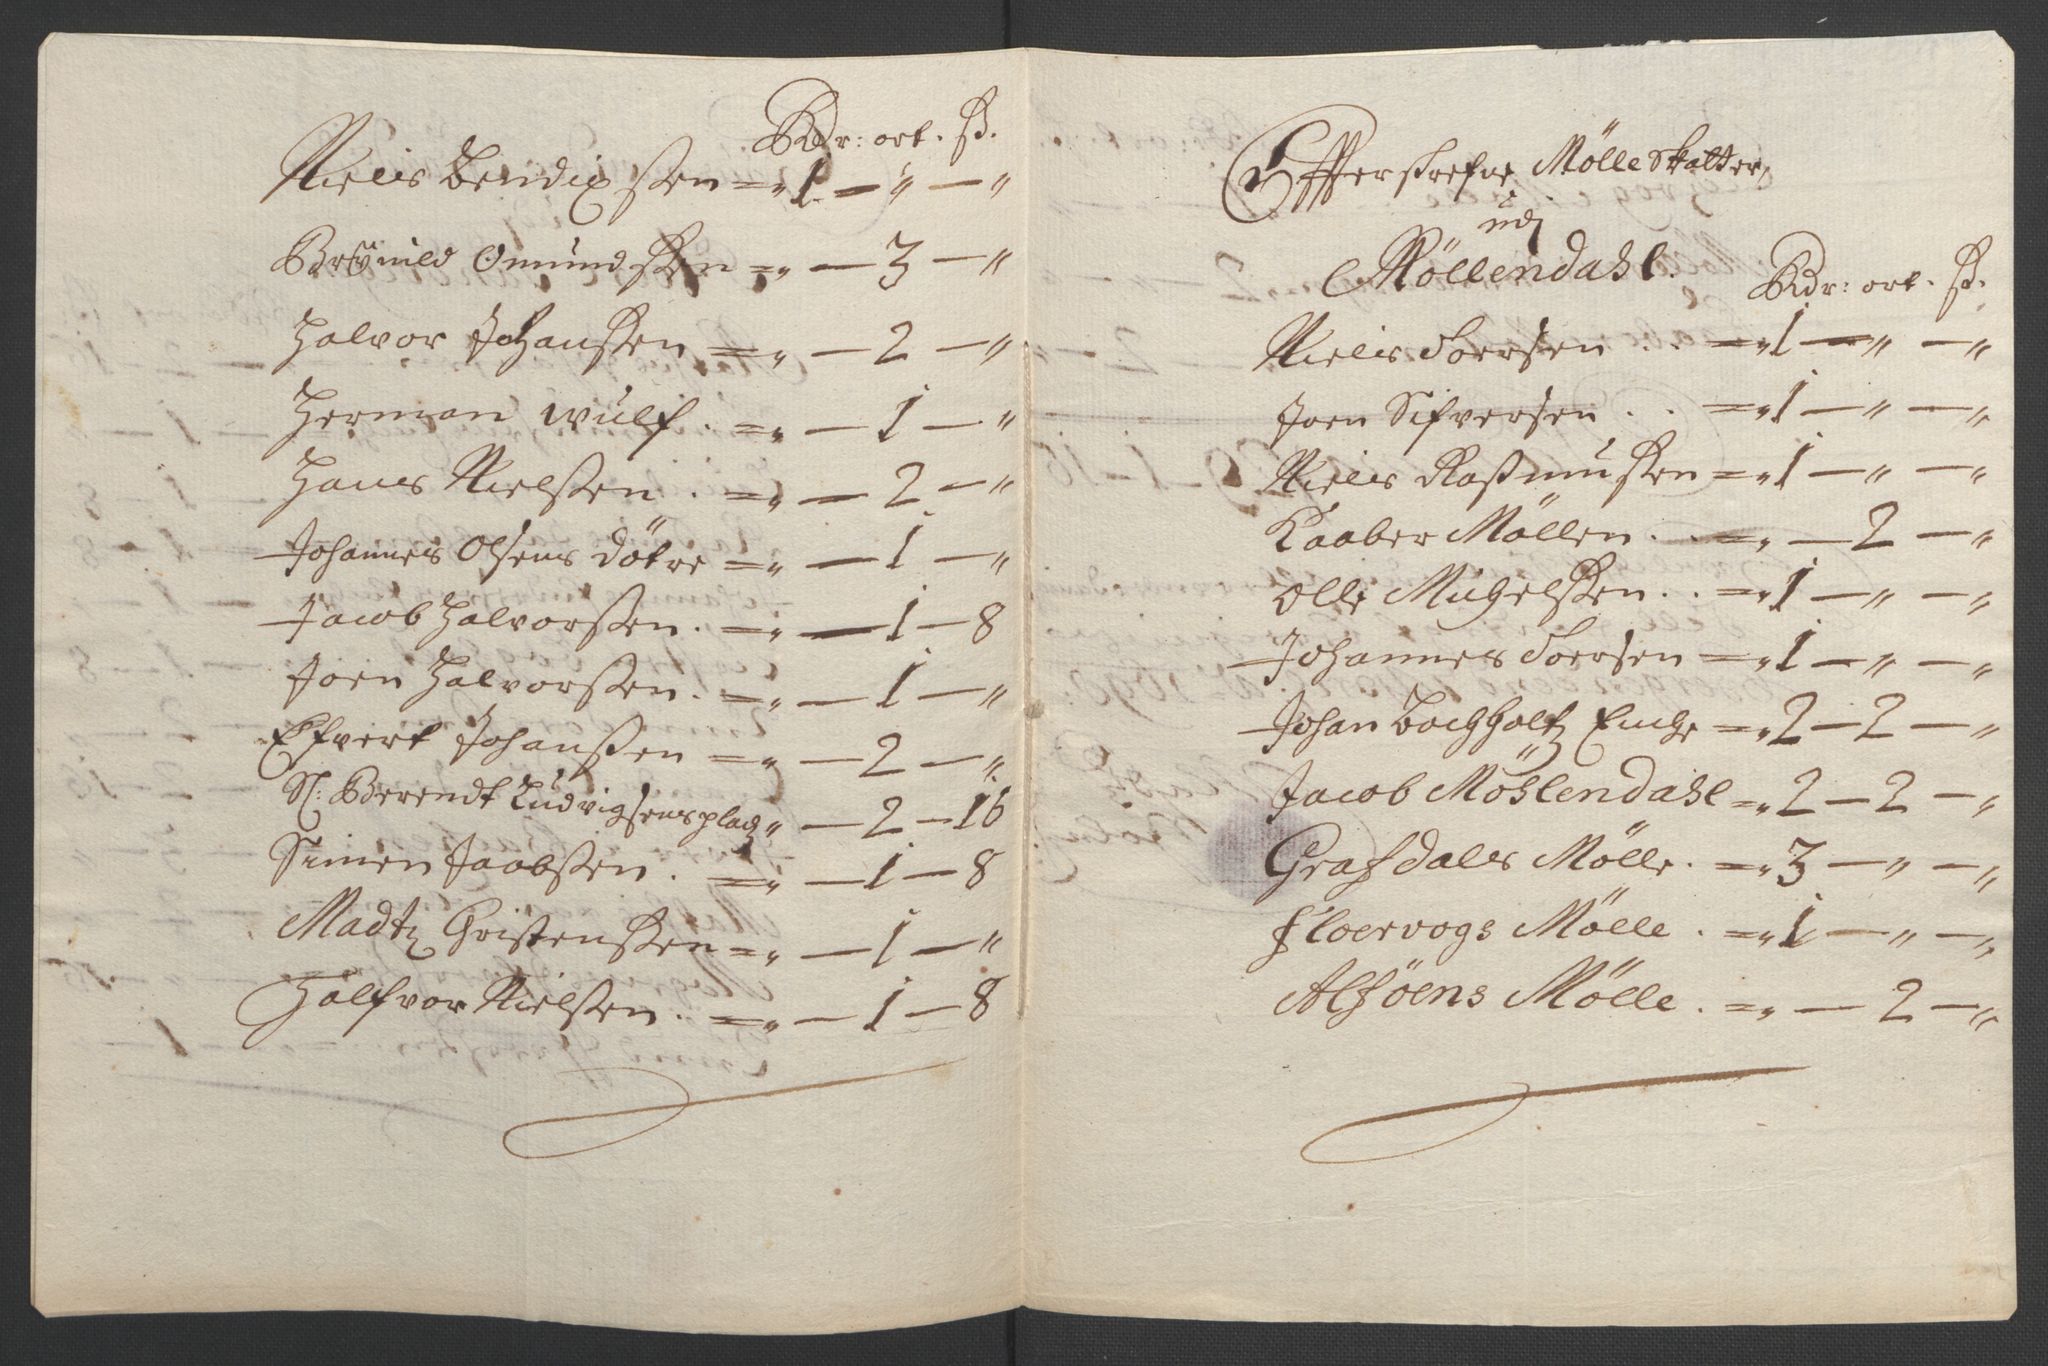 Rdr: ort. ß.
Niels Bendixssen = „ 1 — „ — „
Omundssen = „ — 3 — „
Halvor Johanssen = „ — 2 — „
Herman Wulf . = „ — 1 — „
Hans Nielssen . = „ — 2 — „
Johannes Olsens Dötre = „ — 1 — „
Jacob Halvorssen . = „ — 1 — 8
Joen Halvorssen . = „ — 1 — „
Efvert Johanssen = „ — 2 — „
Sl: Berendt Ludvigsens platz „ — 2 — 16
Simen Jacobssen . = „ — 1 — 8
Madtz Christenssen = „ — 1 — „
Halfvor Nielssen . = „ — 1 — 8
Efferskrefne Mölle Skatter,
udj
Möllendahl.
Rdr: ort. ß.
Niels Soersen . . = „ 1 — „ — „
Joen Sifversen . . = „ 1 — „ — „
Niels Rasmussen = „ 1 — „ — „
Kaaber Möllen . . = „ — 2 — „
Olle Michelssen . . = „ 1 — „ — „
Johannes Soersen = „ 1 — „ — „
Johan Bochholtz Enche = „ 2 — 2 — „
Jacob Möhlendahl = „ 2 — 2 — „
Grafdals Mölle . = „ 3 — „ — „
Floervogs Mölle . = „ 1 — „ — „
Alföens Mölle . = „ — 2 — „